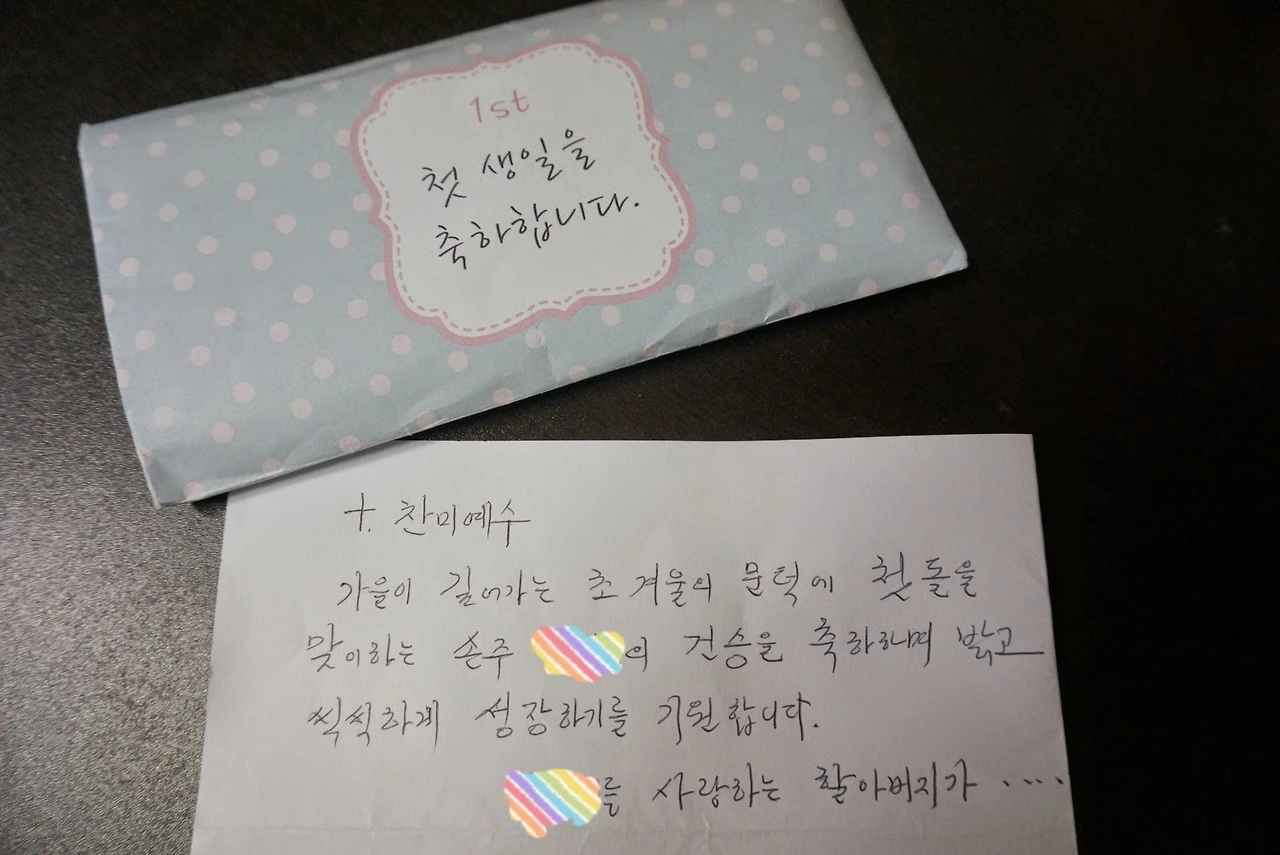 1st
첫 생일을
축하합니다.
+. 찬미예수
가을이 깊어가는 초겨울의 문턱에 첫 돌을
맞이하는 손주 의 건승을 축하하며 밝고
씩씩하게 성장하기를 기원합니다.
를 사랑하는 할아버지가 ....